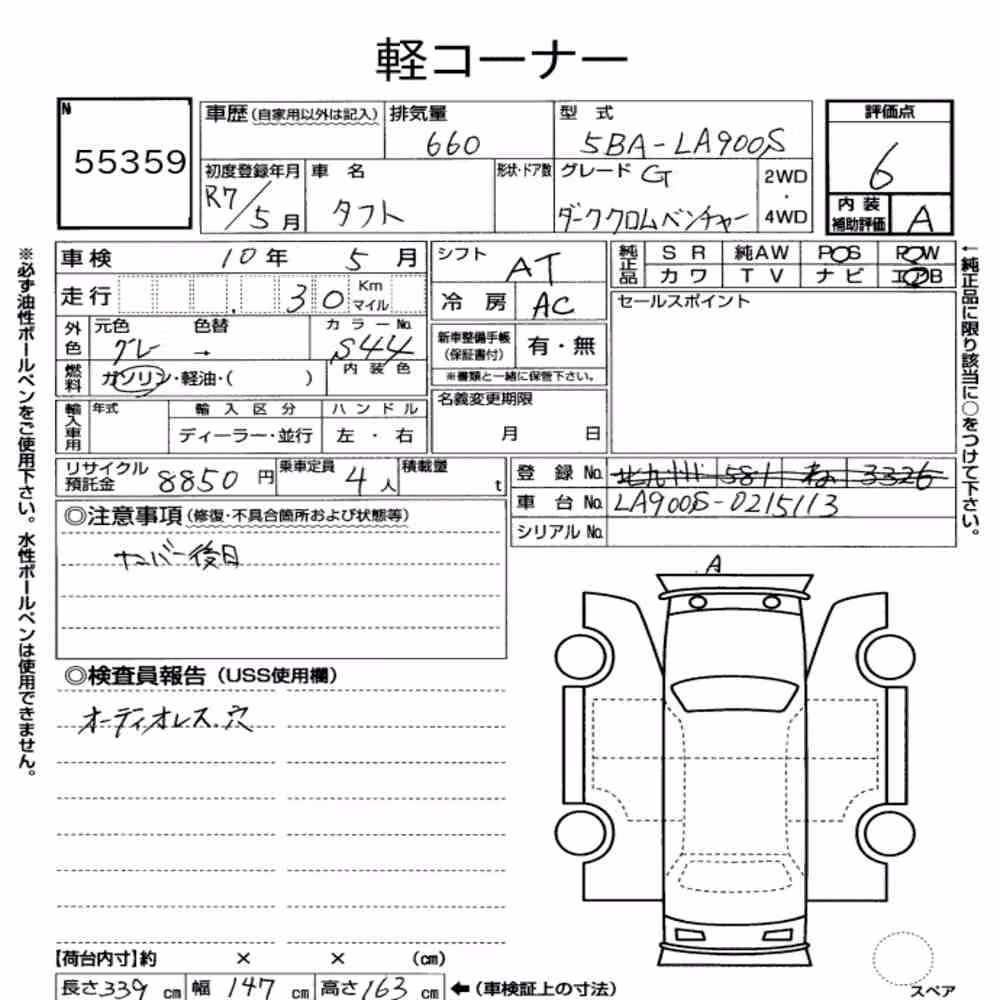 軽コーナー
N
55359
車歴(自家用以外は記入)
排気量
660
型 式
5BA-LA900S
評価点
6
初度登録年月
R7/5月
車 名
タフト
形状・ドア数
グレード G
ダーククロムベンチャー
2WD
・
4WD
内 装
補助評価
A
車検 10年 5月
シフト
AT
純正品
S R 純AW P◯S P◯W
カ ワ T V ナ ビ エアB
走行 .30 Km
マイル
冷 房 AC
セールスポイント
外色
元色 色替
グレー →
カ ラ ー No.
S44
内 装 色
新車整備手帳
(保証書付)
有・無
※書類と一緒に保管下さい。
燃料
ガソリン・軽油・( )
名義変更期限
月 日
輸入車用
年式
輸 入 区 分
ハ ン ド ル
ディーラー・並行
左 ・ 右
リサイクル
預託金
8850 円
乗車定員
4人
積載量
t
登 録 No. 北九州 581 ね 3326
車 台 No. LA900S-0215113
シリアル No.
◎注意事項(修復・不具合箇所および状態等)
ナンバー後日
A
◎検査員報告(USS使用欄)
オーディオレス.穴
【荷台内寸】約 × × (cm)
長さ339 cm 幅 147 cm 高さ163 cm ←(車検証上の寸法)
スペア
※必ず油性ボールペンをご使用下さい。水性ボールペンは使用できません。
←純正品に限り該当に○をつけて下さい。